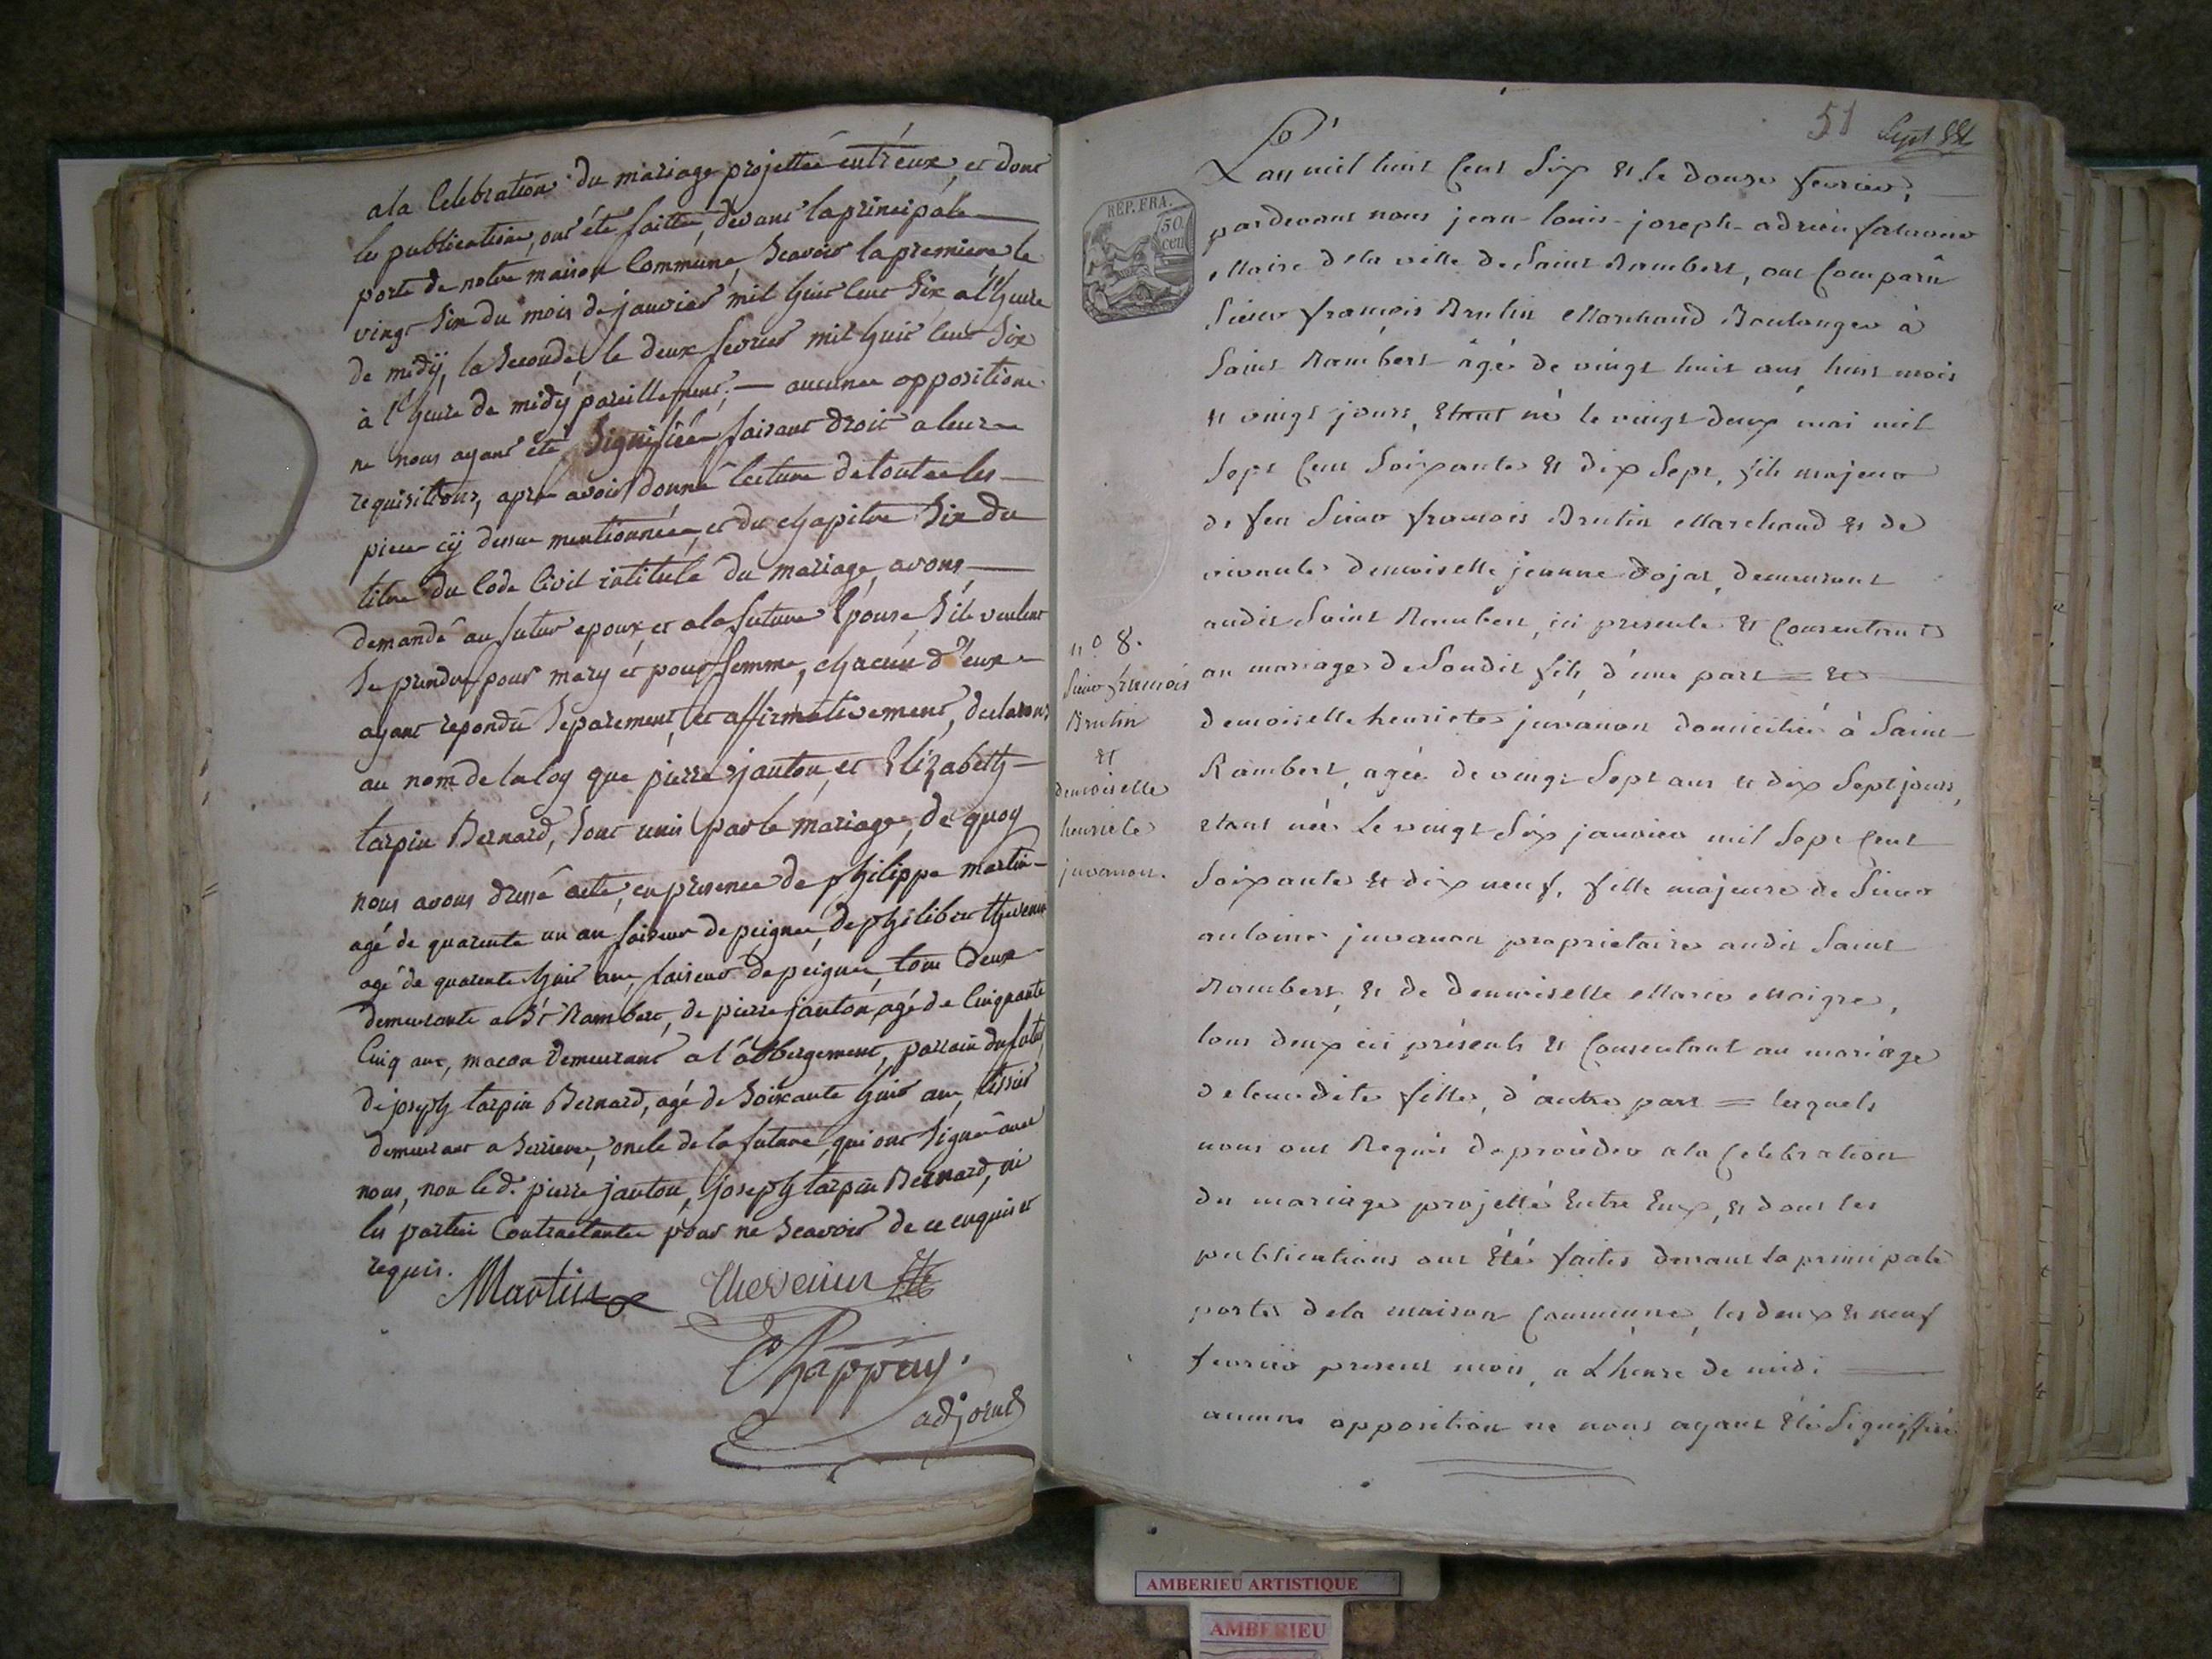 a la Celebration du mariage projetteé entr'eux, et dont
les publications, ont été faittes, devant la principale
porte de notre maison Commune, Scavoir la premiere le
vingt Six du mois de janvier mil huit Cent Six a l'heure
de midÿ, la Seconde, le deux fevrier mil huit Cent Six
à l'heure de midÿ pareillement; — aucunes oppositions
ne nous ayant été Signifiées faisant droit a leurs
requisitions, apres avoir donné lecture de toutes les
pieces cÿ dessus mentionnées, et du chapitre Six du
titre du Code Civil intitulé du mariage, avons
demandé au futur epoux, et a la future Epouse S'ils veulent
Se prendre pour mary et pour femme, chacun d'eux
ayant repondu Separement, et affirmativement, declarons
au nom de la loy que pierre janton, et Elizabeth
tarpin Bernard, Sont unis par le mariage, de quoy
nous avons dressé acte, en presence de philippe martin
agé de quarente un an faiseur de peignes, de philibert thevenin
agé de quarente huit ans, faiseur de peignes, tous deux
demeurants a St Rambert, de pierre janton, agé de Cinquante
Cinq ans, macon demeurant a l'abergement, parrain du futur
de joseph tarpin Bernard, agé de Soixante huit ans, tissier
demeurant a Serrieres, oncle de la future, qui ont Signé avec
nous, non led. pierre janton, joseph tarpin Bernard, ni
les parties Contractantes pour ne Scavoir de ce enquis et
requis.
Martin Thevenin
Chappuy.
adjoint
51 Sept
L'an mil huit Cent Six et le douze fevrier,
REP. FRA.
50 cen
pardevant nous jean-louis-joseph-adrien falavier
Maire de la ville de Saint Rambert, ont Comparû
Sieur françois Brutin Marchand Boulanger à
Saint Rambert âgé de vingt huit ans, huit mois
et vingt jours, Etant né le vingt deux mai mil
Sept Cent Soixante et dix Sept, fils majeur
de feu Sieur francois Brutin Marchand et de
vivante demoiselle jeanne Dojat, demeurant
audit Saint Rambert, ici presente et Consentant
au mariage de Soudit fils, d'une part = et
n° 8.
Sieur francois
Brutin
et
demoiselle
henriete
juvanon.
demoiselle henriete juvanon domiciliée à Saint
Rambert, agée de vingt Sept ans et dix Sept jours,
etant née le vingt Six janvier mil Sept Cent
Soixante et dix neuf, fille majeure de Sieur
antoine juvanon proprietaire audit Saint
Rambert, et de demoiselle Marie Maigre,
tous deux ici présents et Consentant au mariage
de leurdite fille, d'autre part = lesquels
nous ont Requis de procéder a la Celebration
du mariage projetté Entre Eux, et dont les
publications ont Eté faites devant la principale
porte de la maison Commune, les deux et neuf
fevrier present mois, a L'heure de midi
aucune opposition ne nous ayant Eté Signiffiée
AMBERIEU ARTISTIQUE
AMBERIEU